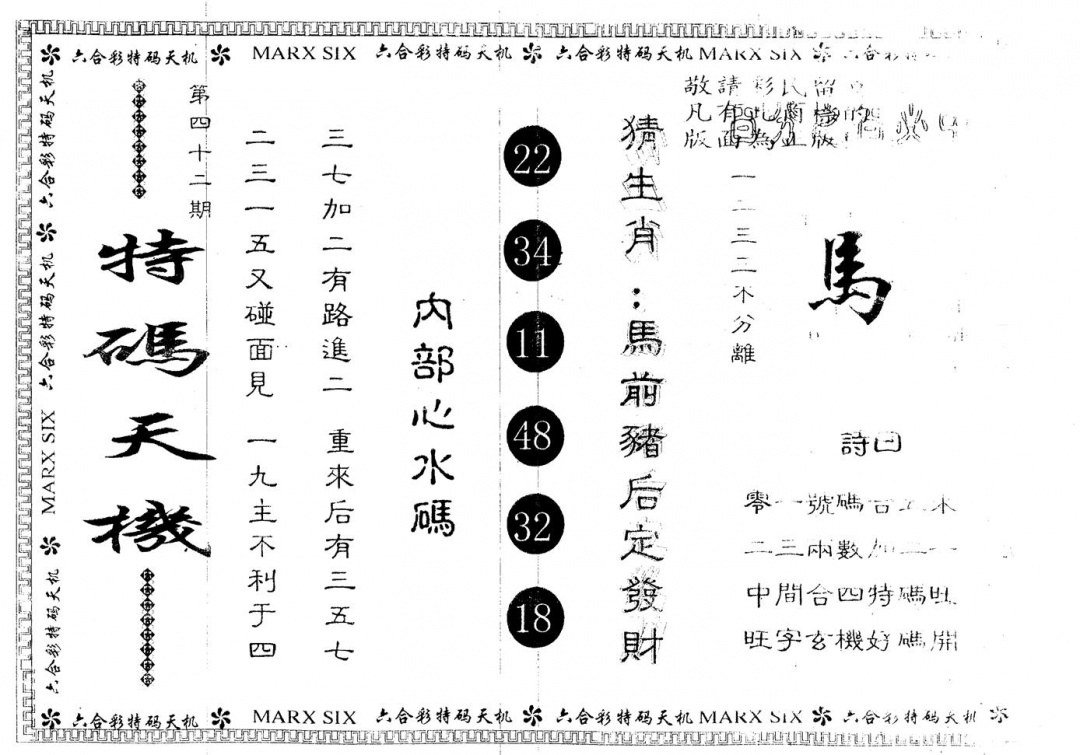 六合彩特码天机 MARX SIX 六合彩特码天机 六合彩特码天机 MARX SIX
六合彩特码天机 六合彩特码天机 MARX SIX 六合彩特码天机
第四十二期
特碼天機
二三一五又碰面見 一九主不利于四
三七加二有路進二 重來后有三五七
內部心水碼
22
34
11
48
32
18
猜生肖：馬前豬后定發財
敬請彩民留
凡有
版面為正版
一二三二不分離
馬
詩曰
零一號碼合
二三兩數加二一
中間合四特碼旺
旺字玄機好碼開
六合彩特码天机 MARX SIX 六合彩特码天机 六合彩特码天机 MARX SIX 六合彩特码天机